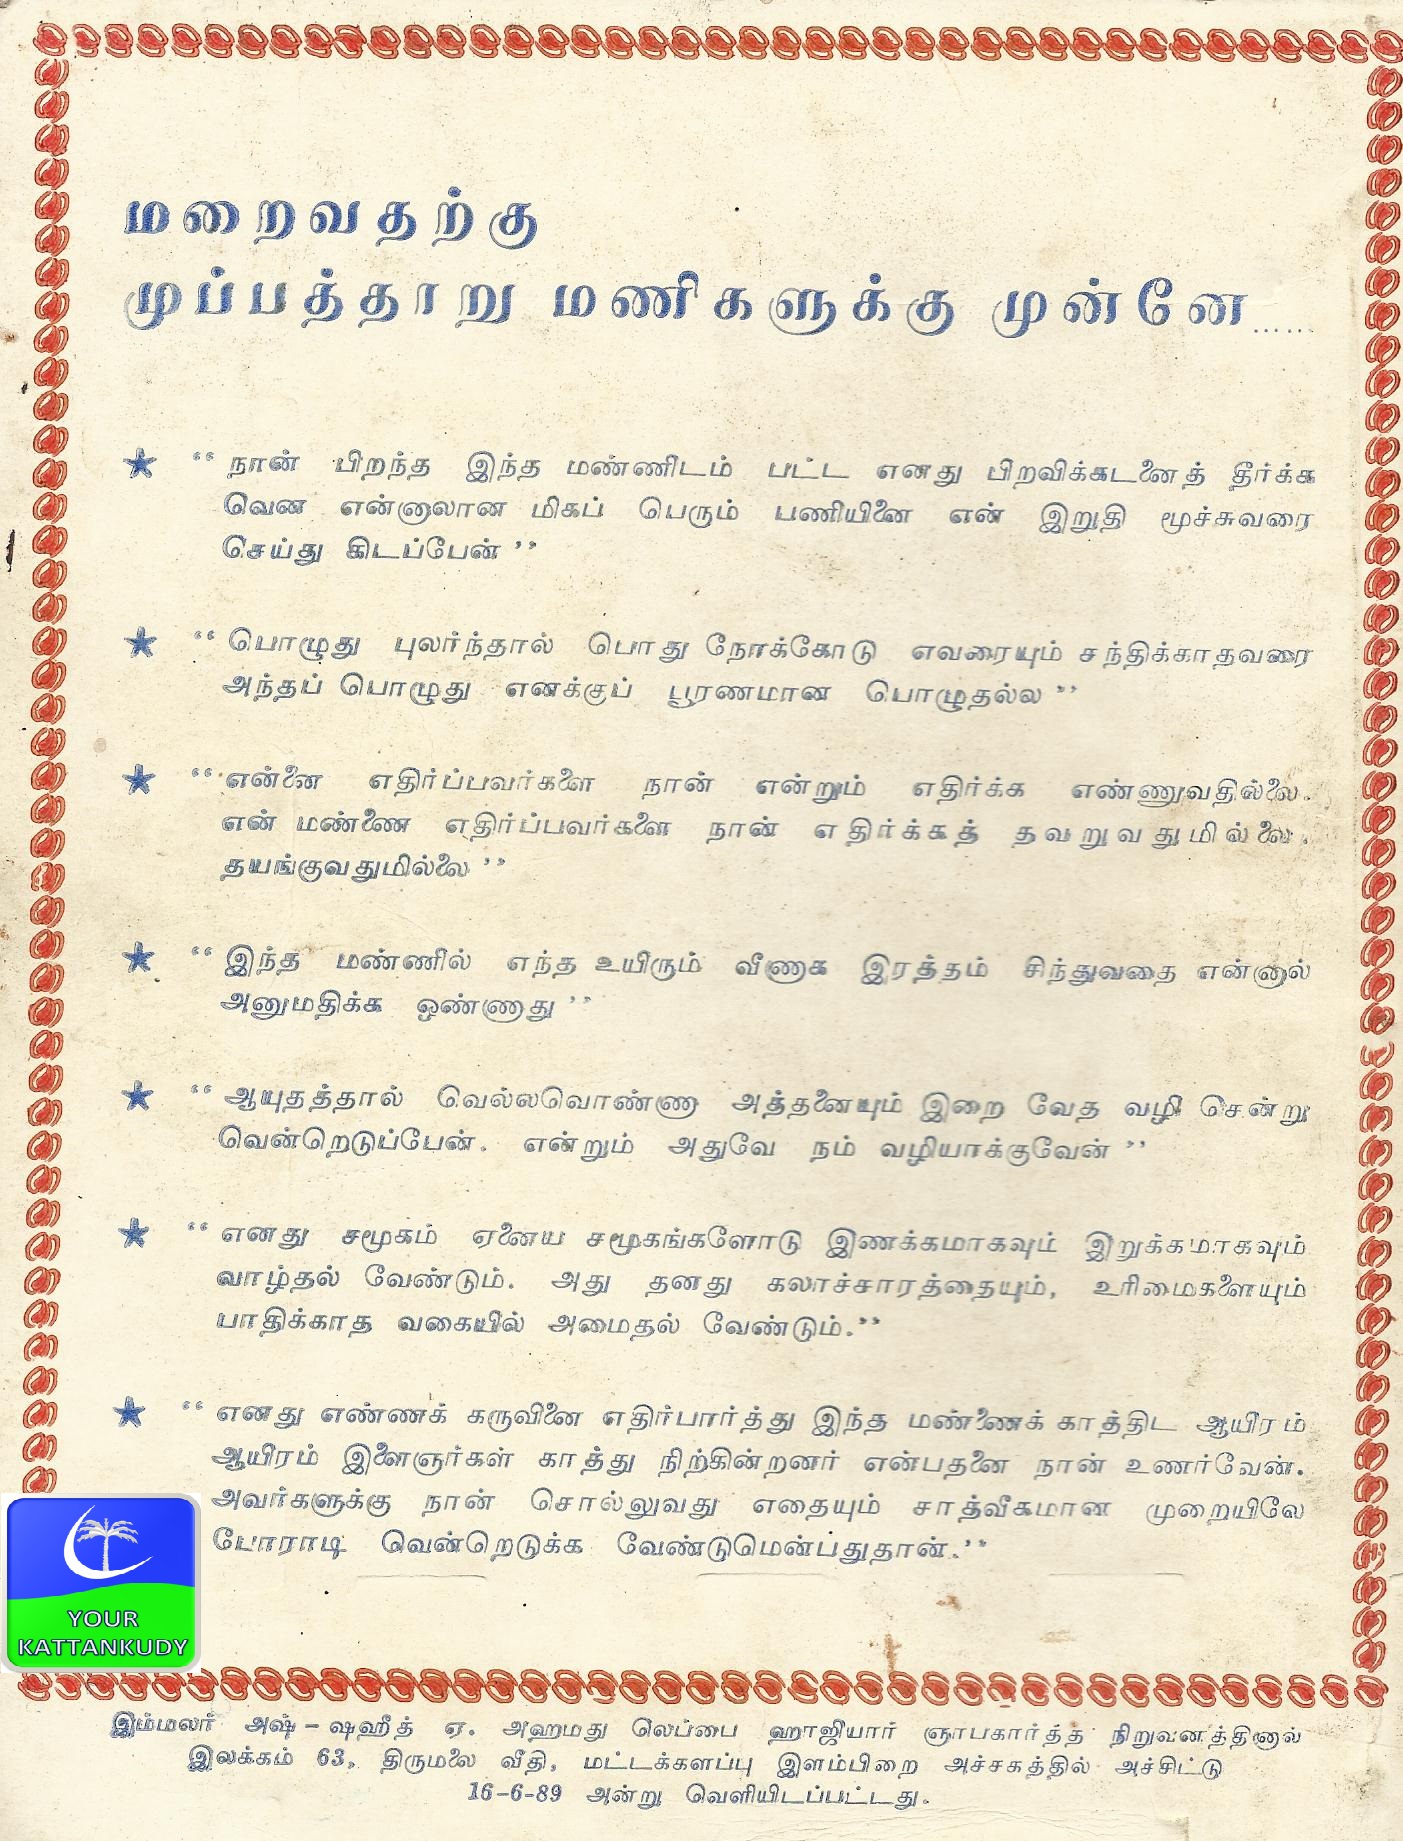 மறைவதற்கு
முப்பத்தாறு மணிகளுக்கு முன்னே......
★ “ நான் பிறந்த இந்த மண்ணிடம் பட்ட எனது பிறவிக்கடனைத் தீர்க்க
வென என்னாலான மிகப் பெரும் பணியினை என் இறுதி மூச்சுவரை
செய்து கிடப்பேன் ”
★ “ பொழுது புலர்ந்தால் பொது நோக்கோடு எவரையும் சந்திக்காதவரை
அந்தப் பொழுது எனக்குப் பூரணமான பொழுதல்ல ”
★ “ என்னை எதிர்ப்பவர்களை நான் என்றும் எதிர்க்க எண்ணுவதில்லை.
என் மண்ணை எதிர்ப்பவர்களை நான் எதிர்க்கத் தவறுவதுமில்லை.
தயங்குவதுமில்லை ”
★ “ இந்த மண்ணில் எந்த உயிரும் வீணாக இரத்தம் சிந்துவதை என்னால்
அனுமதிக்க ஒண்ணாது ”
★ “ ஆயுதத்தால் வெல்லவொண்ணா அத்தனையும் இறை வேத வழி சென்று
வென்றெடுப்பேன். என்றும் அதுவே நம் வழியாக்குவேன் ”
★ “ எனது சமூகம் ஏனைய சமூகங்களோடு இணக்கமாகவும் இறுக்கமாகவும்
வாழ்தல் வேண்டும். அது தனது கலாச்சாரத்தையும், உரிமைகளையும்
பாதிக்காத வகையில் அமைதல் வேண்டும்.”
★ “ எனது எண்ணக் கருவினை எதிர்பார்த்து இந்த மண்ணைக் காத்திட ஆயிரம்
ஆயிரம் இளைஞர்கள் காத்து நிற்கின்றனர் என்பதனை நான் உணர்வேன்.
அவர்களுக்கு நான் சொல்லுவது எதையும் சாத்வீகமான முறையிலே
போராடி வென்றெடுக்க வேண்டுமென்பதுதான்.”
YOUR
KATTANKUDY
இம்மலர் அஷ் – ஷஹீத் ஏ. அஹமது லெப்பை ஹாஜியார் ஞாபகார்த்த நிறுவனத்தினால்
இலக்கம் 63, திருமலை வீதி, மட்டக்களப்பு இளம்பிறை அச்சகத்தில் அச்சிட்டு
16-6-89 அன்று வெளியிடப்பட்டது.